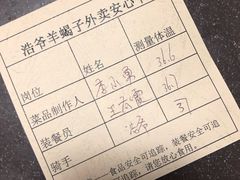 浩爷羊蝎子外卖安心卡
岗位 姓名 测量体温
菜品制作人 李凤勇 36.6
装餐员 王 36.3
骑手 浩 37
食品安全可追踪,装餐安全可追
踪,请您放心食用。